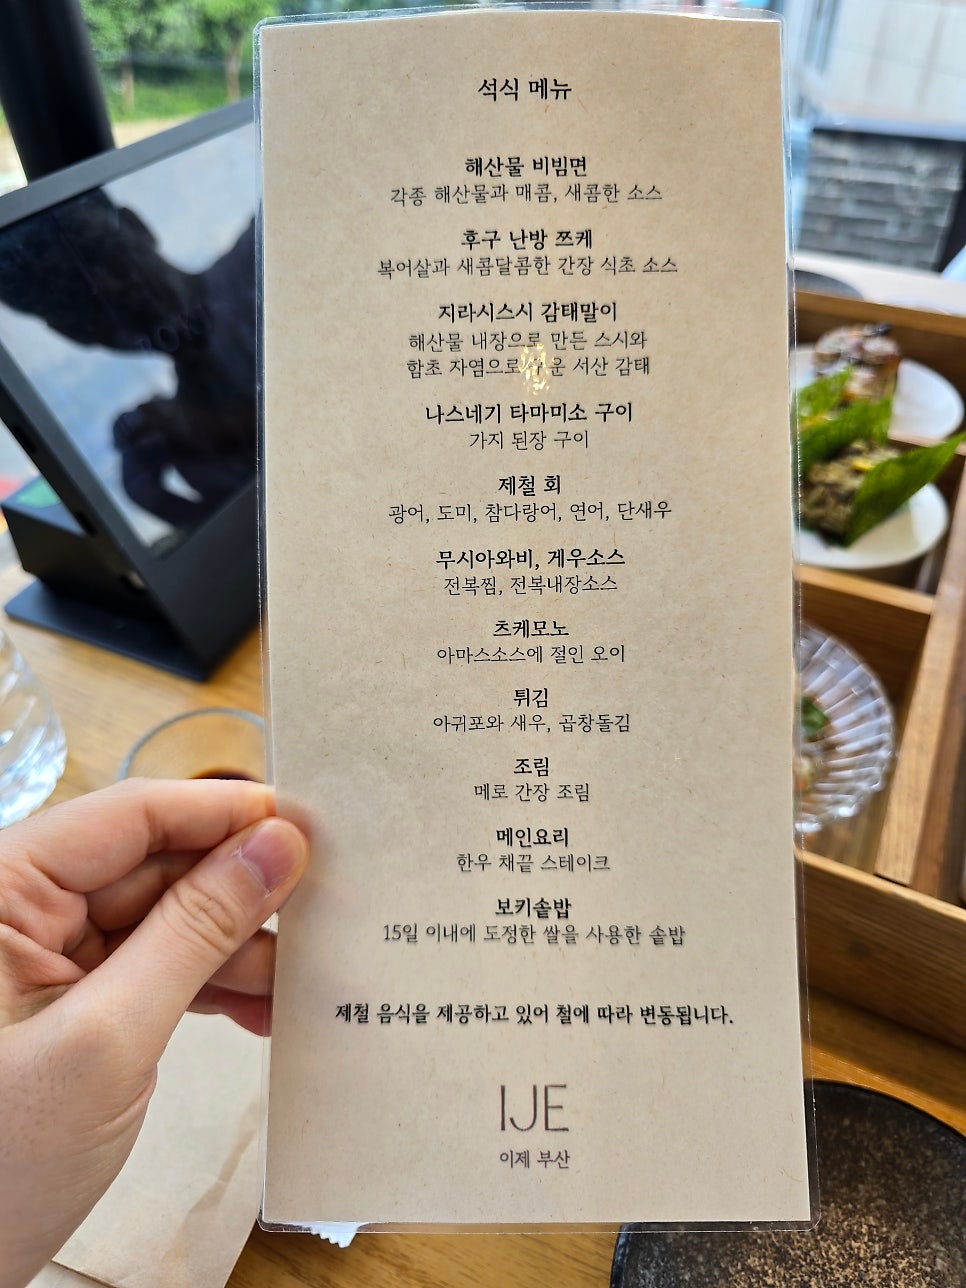 석식 메뉴
해산물 비빔면
각종 해산물과 매콤, 새콤한 소스
후구 난방 쯔케
복어살과 새콤달콤한 간장 식초 소스
지라시스시 감태말이
해산물 내장으로 만든 스시와
함초 자염으로 운 서산 감태
나스네기 타마미소 구이
가지 된장 구이
제철 회
광어, 도미, 참다랑어, 연어, 단새우
무시아와비, 게우소스
전복찜, 전복내장소스
츠케모노
아마스소스에 절인 오이
튀김
아귀포와 새우, 곱창돌김
조림
메로 간장 조림
메인요리
한우 채끝 스테이크
보키솥밥
15일 이내에 도정한 쌀을 사용한 솥밥
제철 음식을 제공하고 있어 철에 따라 변동됩니다.
IJE
이제 부산